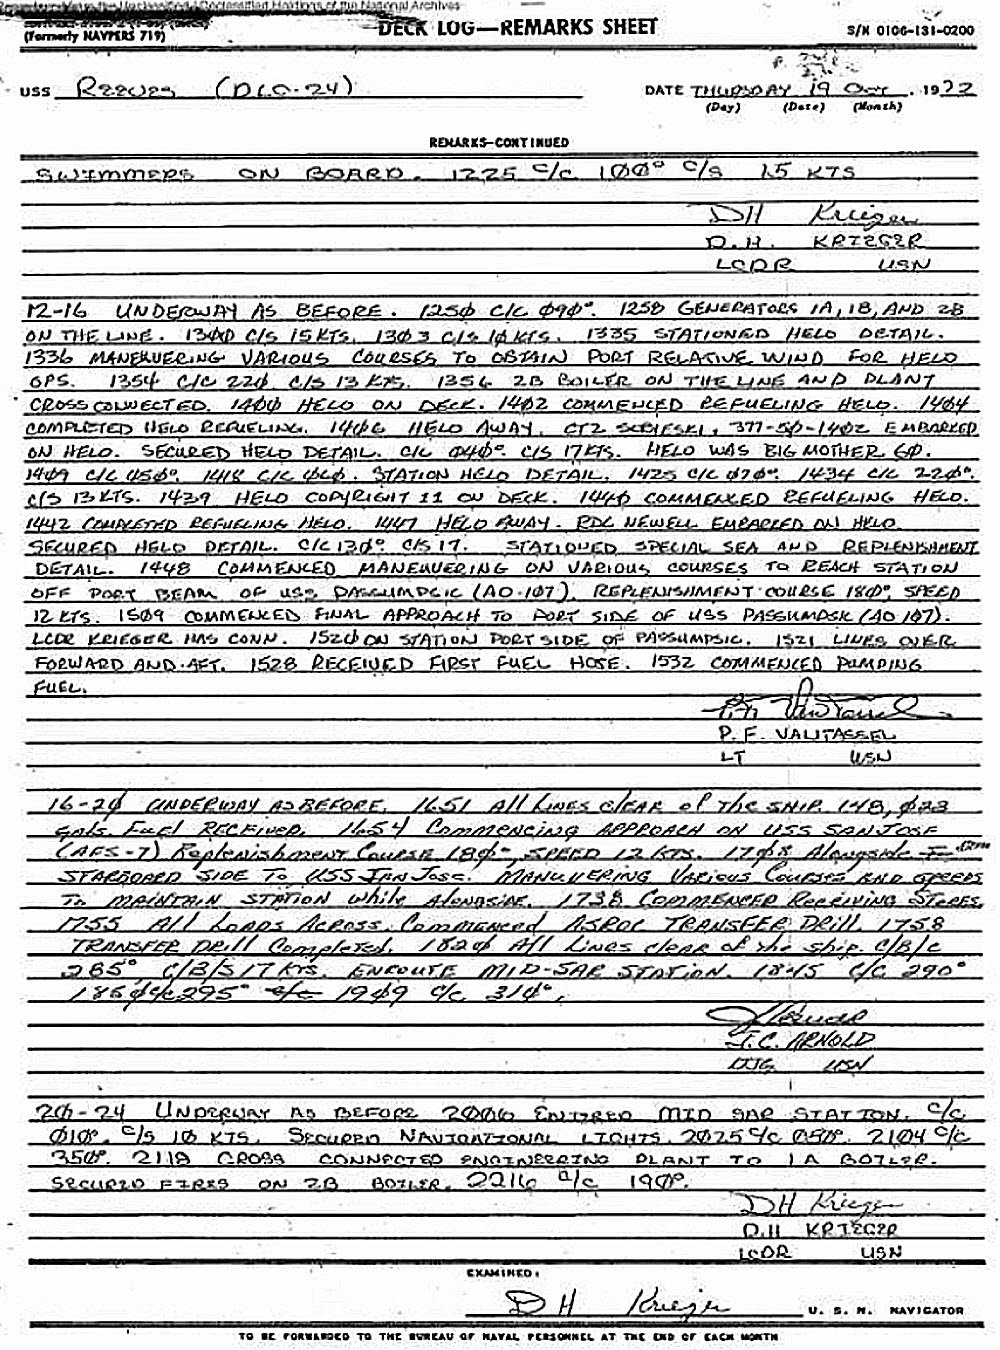 Declassified Holdings of the National Archives
(Formerly NAVPERS 719)
DECK LOG—REMARKS SHEET
S/N 0106-131-0200
USS REEVES (DLG-24)
DATE THURSDAY 19 OCT, 1972
(Day) (Date) (Month)
REMARKS—CONTINUED
SWIMMERS ON BOARD. 1225 C/C 1ØØ° C/S 15 KTS
DH Krieger
D.H. KRIEGER
LCDR USN
12-16 UNDERWAY AS BEFORE. 125Ø C/C Ø9Ø°. 1258 GENERATORS 1A, 1B, AND 2B
ON THE LINE. 13ØØ C/S 15 KTS. 13Ø3 C/S 1Ø KTS. 1335 STATIONED HELO DETAIL.
1336 MANEUVERING VARIOUS COURSES TO OBTAIN PORT RELATIVE WIND FOR HELO
OPS. 1354 C/C 22Ø C/S 13 KTS. 1356 2B BOILER ON THE LINE AND PLANT
CROSSCONNECTED. 14ØØ HELO ON DECK. 14Ø2 COMMENCED REFUELING HELO. 14Ø4
COMPLETED HELO REFUELING. 14Ø6 HELO AWAY. CT2 377-5Ø-14Ø2 EMBARKED
ON HELO. SECURED HELO DETAIL. C/C Ø4Ø° C/S 17 KTS. HELO WAS BIG MOTHER 6Ø.
14Ø9 C/C Ø5Ø°. 1418 C/C STATION HELO DETAIL. 1425 C/C Ø7Ø°. 1434 C/C 22Ø°.
C/S 13 KTS. 1439 HELO COPYRIGHT 11 ON DECK. 144Ø COMMENCED REFUELING HELO.
1442 COMPLETED REFUELING HELO. 1447 HELO AWAY. RDC NEWELL EMBARKED ON HELO.
SECURED HELO DETAIL. C/C 13Ø° C/S 17. STATIONED SPECIAL SEA AND REPLENISHMENT
DETAIL. 1448 COMMENCED MANEUVERING ON VARIOUS COURSES TO REACH STATION
OFF PORT BEAM OF USS PASSUMPSIC (AO-1Ø7). REPLENISHMENT COURSE 18Ø° SPEED
12 KTS. 15Ø9 COMMENCED FINAL APPROACH TO PORT SIDE OF USS PASSUMPSIC (AO 1Ø7).
LCDR KRIEGER HAS CONN. 152Ø ON STATION PORT SIDE OF PASSUMPSIC. 1521 LINES OVER
FORWARD AND AFT. 1528 RECEIVED FIRST FUEL HOSE. 1532 COMMENCED PUMPING
FUEL.
P.F. VanTassel
P. F. VANTASSEL
LT USN
16-2Ø UNDERWAY AS BEFORE. 1651 All Lines clear of the SHIP. 148, Ø23
gals. Fuel RECEIVED. 1654 Commencing APPROACH ON USS SAN JOSE
(AFS-7) Replenishment Course 18Ø°, SPEED 12 KTS. 17Ø8 Alongside
STARBOARD SIDE TO USS SAN JOSE. MANEUVERING VARIOUS COURSES AND SPEEDS
To MAINTAIN STATION while Alongside. 1738 COMMENCED Receiving STORES.
1755 All LOADS ACROSS. Commenced ASROC TRANSFER DRILL. 1758
TRANSFER DRILL Completed. 182Ø All Lines clear of the ship. C/B/C
285° C/B/S 17 KTS. ENROUTE MID-SAR STATION. 1845 C/C 29Ø°
185Ø C/C 295° c/c 19Ø9 C/C 31Ø°.
J.C. ARNOLD
LTJG USN
2Ø-24 UNDERWAY AS BEFORE 2ØØ6 ENTERED MID SAR STATION. C/C
Ø1Ø°. C/S 1Ø KTS. SECURED NAVIGATIONAL LIGHTS. 2Ø25 C/C Ø5Ø°. 21Ø4 C/C
35Ø°. 2118 CROSS CONNECTED ENGINEERING PLANT TO 1A BOILER.
SECURED FIRES ON 2B BOILER. 2216 C/C 19Ø°.
DH Krieger
D.H KRIEGER
LCDR USN
EXAMINED:
DH Krieger
U. S. N. NAVIGATOR
TO BE FORWARDED TO THE BUREAU OF NAVAL PERSONNEL AT THE END OF EACH MONTH